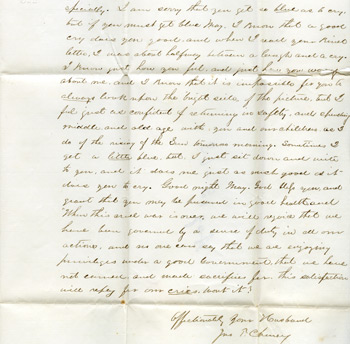 specially. I am sorry that you get so blue as to cry.
but if you must get blue May, I know that a good
cry does you good and when I read your kind
letter, I was about halfway between a laugh and a cry.
I know just how you feel, and just how you worry
about me, and I know that it is impossible for you to
always look upon the bright side of the picture, but I
feel just as confident of returning in safety, and spending
middle and old age with you and our children, as I
do of the rising of the Sun tomorrow morning. Sometimes I
get a little blue, but I just sit down and write
to you, and it does me just as much good as it
does you to cry. Good night May. God help you, and
grant that you may be preserved in good health and
When this cruel war is over, we will rejoice that we
have been governed by a sense of duty in all our
actions, and no one can say that we are enjoying
privileges under a good Government that we have
not earned and made sacrifices for. this satisfaction
will repay for our cries, wont it?
Affectionately Your Husband
Jno P. Cheney